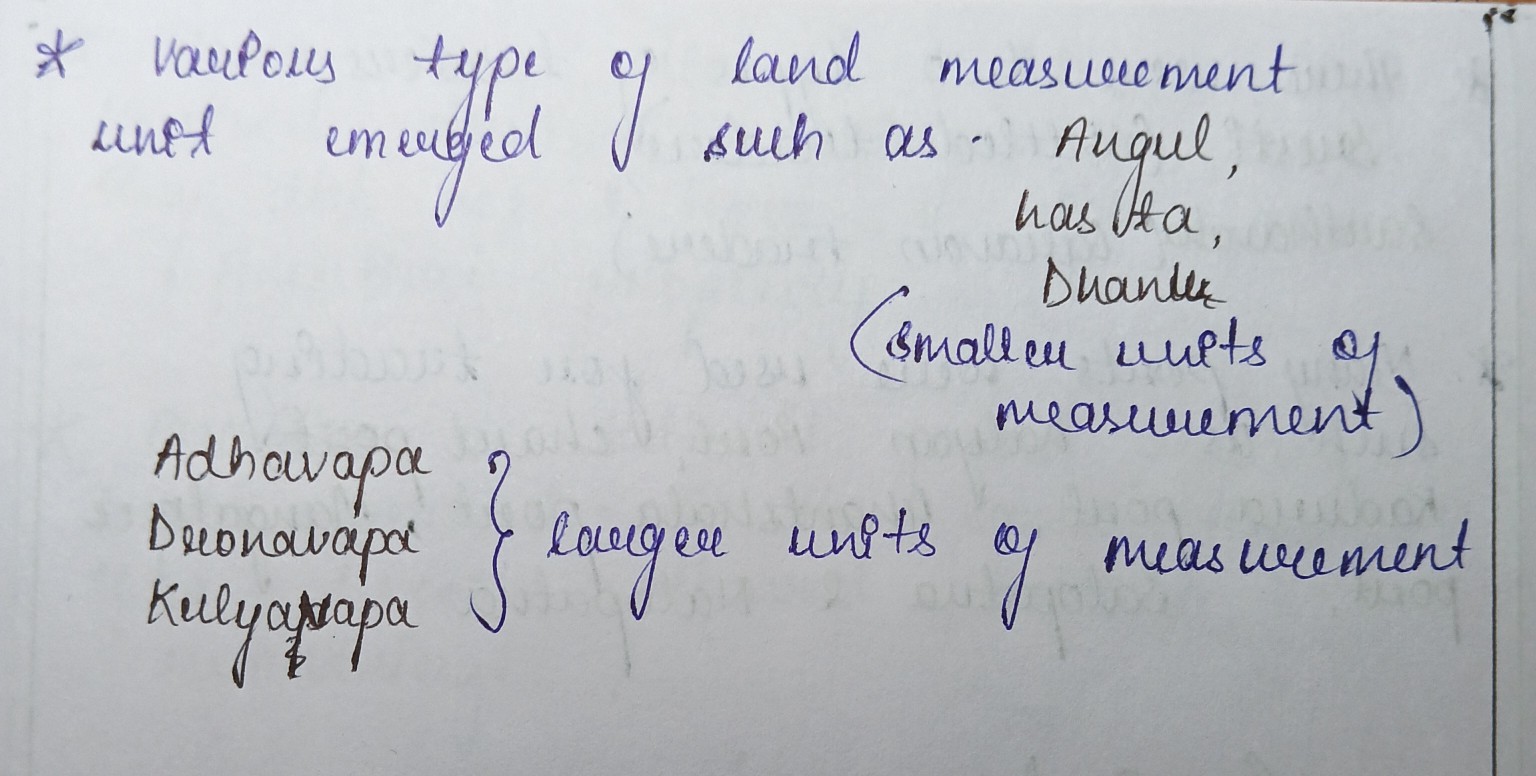 * various type of land measurement
unit emerged such as - Angul,
hasta,
Dhanus
(smaller units of
measurement)
Adhavapa
Dronavapa
Kulyavapa
} larger units of measurement